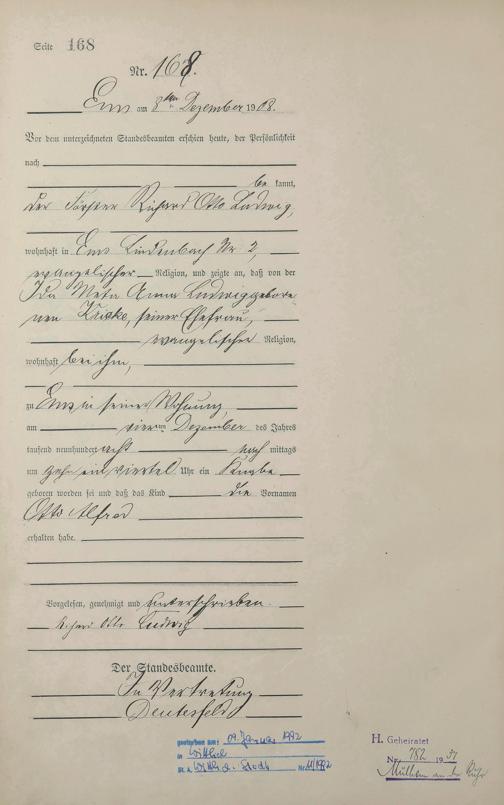 Seite 168
Nr. 168.
Ems am 8ten Dezember 1908.
Vor dem unterzeichneten Standesbeamten erschien heute, der Persönlichkeit
nach
be kannt,
der Förster Richard Otto Ludwig,
wohnhaft in Ems Lindenbach Nr 2,
evangelischer Religion, und zeigte an, daß von der
Ida Meta Anna Ludwig gebore
nen, seiner Ehefrau,
evangelischer Religion,
wohnhaft bei ihm,
zu Ems in seiner Wohnung,
am vierten Dezember des Jahres
tausend neunhundert acht nach mittags
um zehn ein viertel Uhr ein Knabe
geboren worden sei und daß das Kind die Vornamen
Otto Alfred
erhalten habe.
Vorgelesen, genehmigt und unterschrieben.
Richard Otto Ludwig
Der Standesbeamte.
In Vertretung
gestorben am: 09. Januar 1992
in Wittlich
St. A. Wittlich-Stadt Nr. 11/1992
H. Geheiratet
Nr. 782 1937
Mülheim an der Ruhr